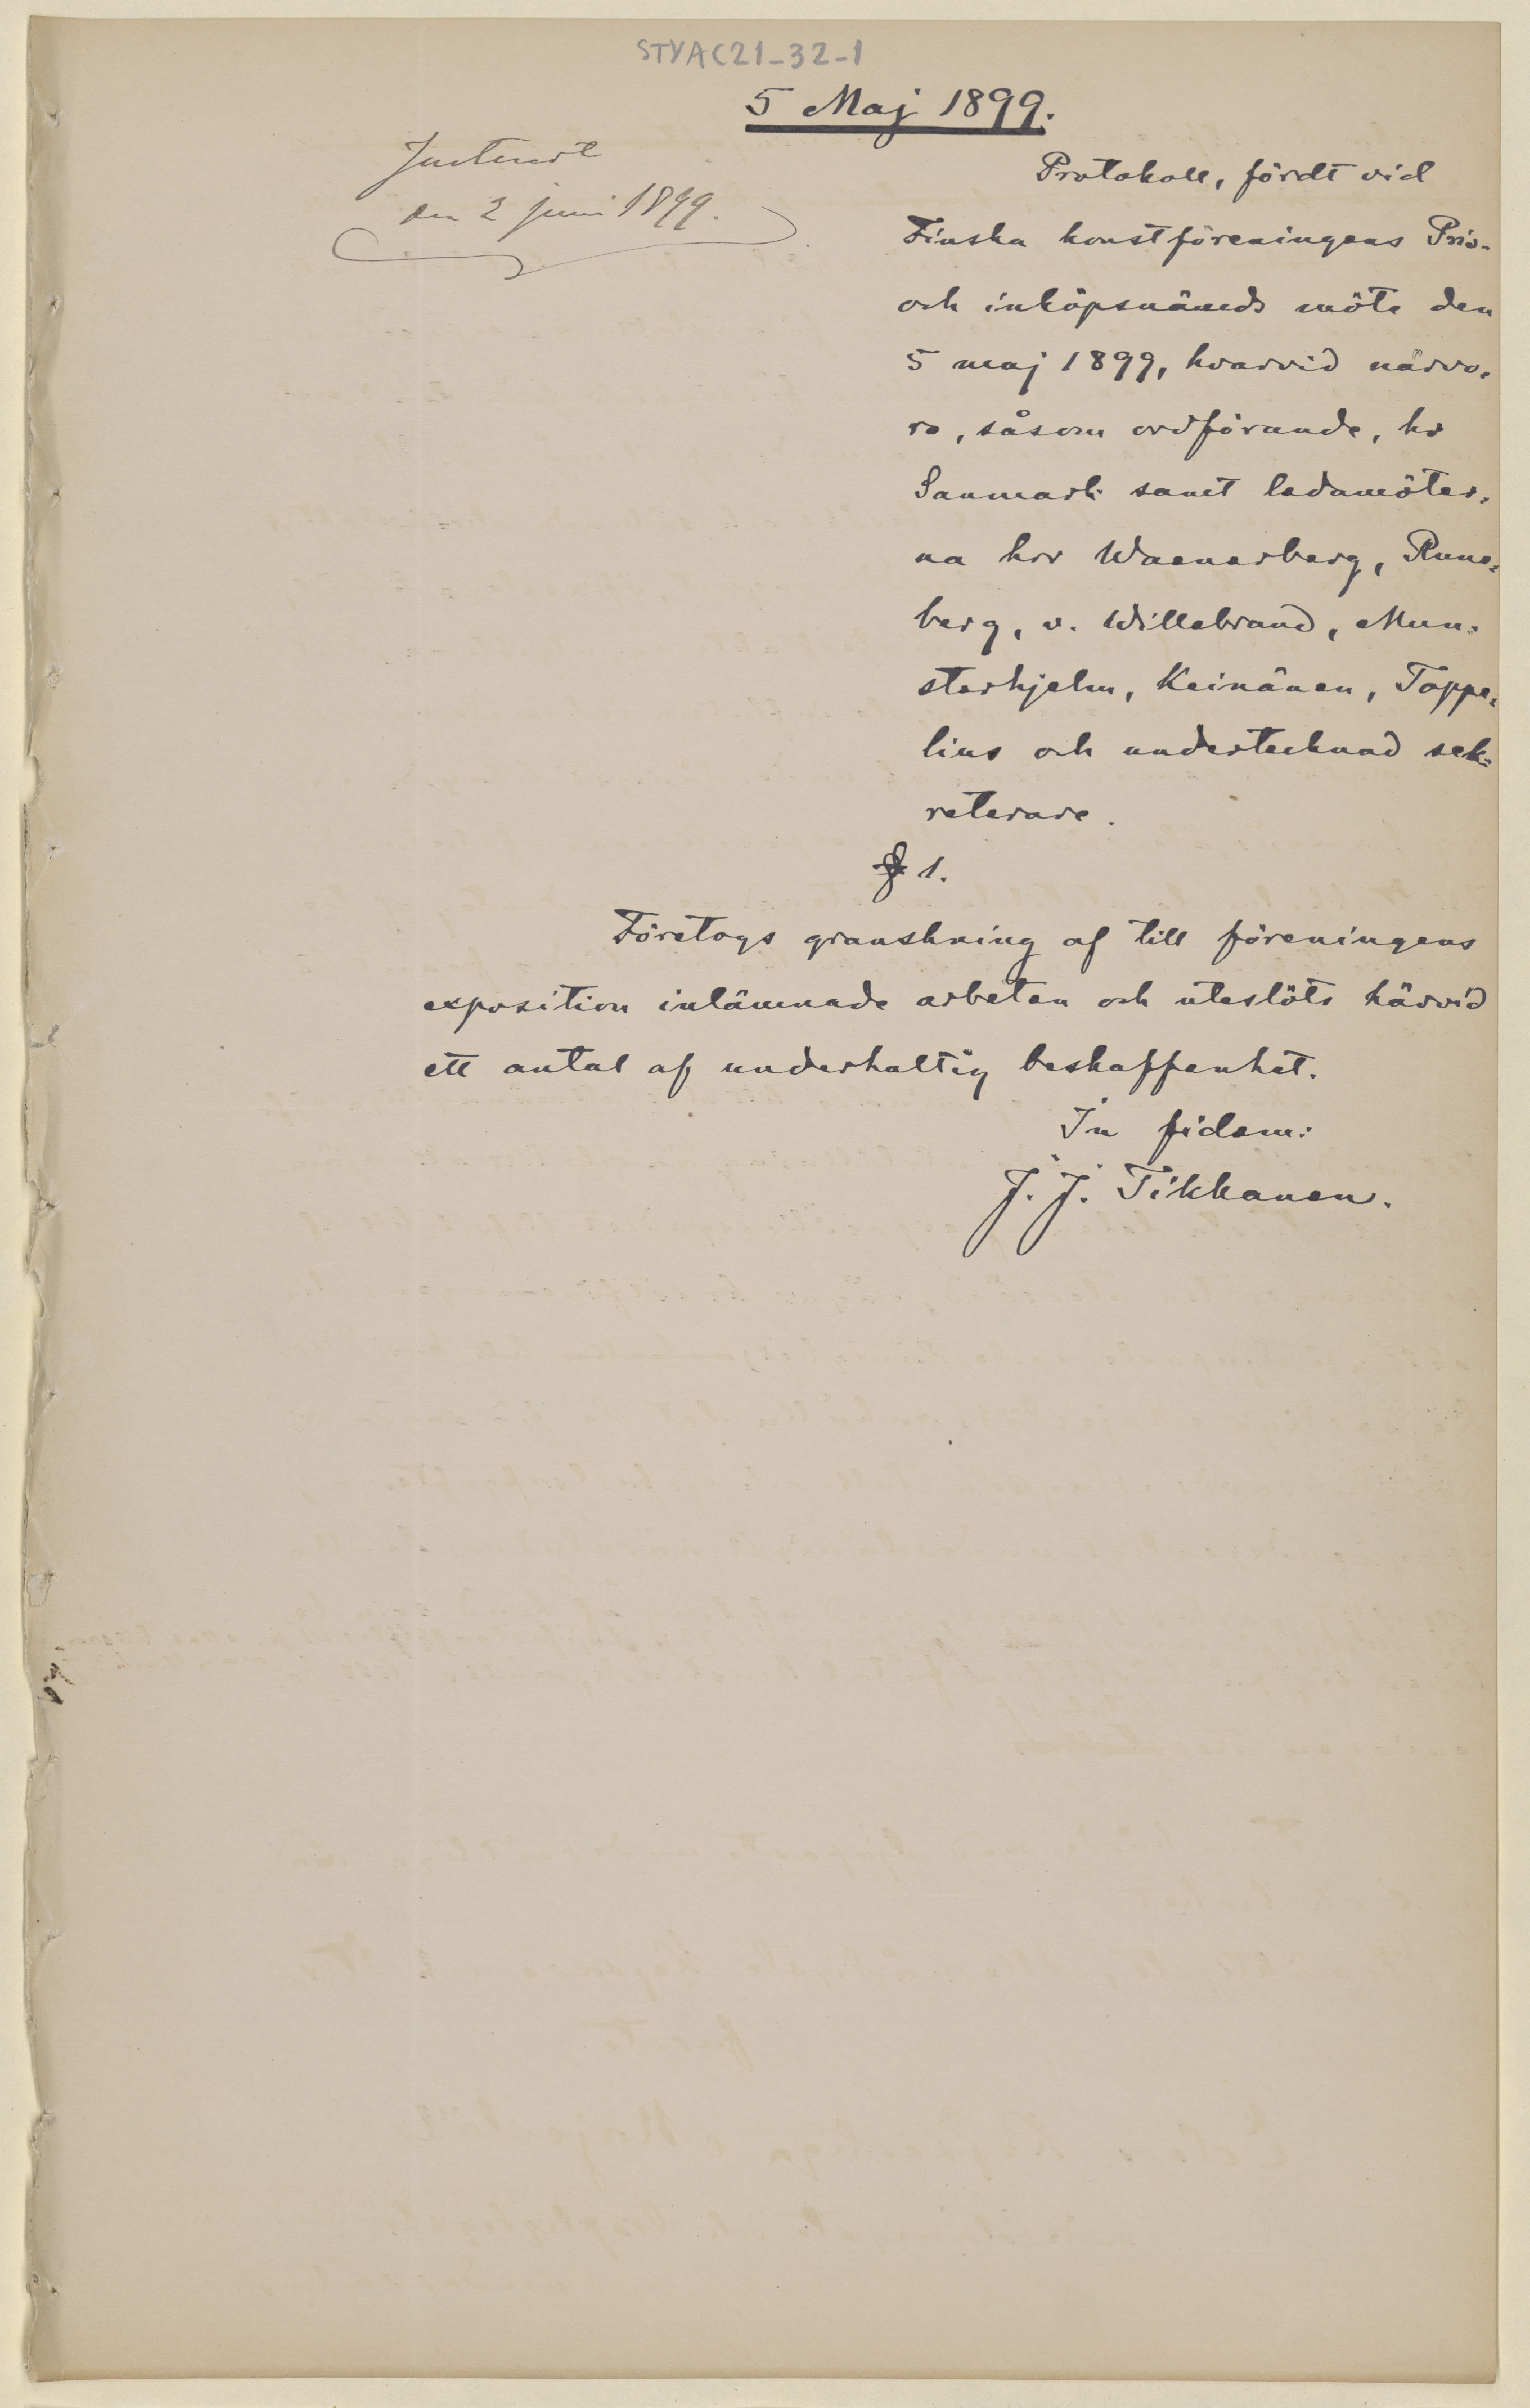 STYAC21-32-1
5 Maj 1899.
Justeradt
den 2 juni 1899.
Protokoll, fördt vid
Finska konstföreningens Pris-
och inköpsnämds möte den
5 maj 1899, hvarvid närvo-
ro, såsom ordförande, hr
Sanmark samt ledamöter-
na hrr Waenerberg, Rune-
berg, v. Willebrand, Mun-
sterhjelm, Keinänen, Toppe-
lius och undertecknad sek-
reterare.
§ 1.
Företogs granskning af till föreningens
exposition inlämnade arbeten och uteslöts härvid
ett antal af underhaltig beskaffenhet.
In fidem:
J. J. Tikkanen.